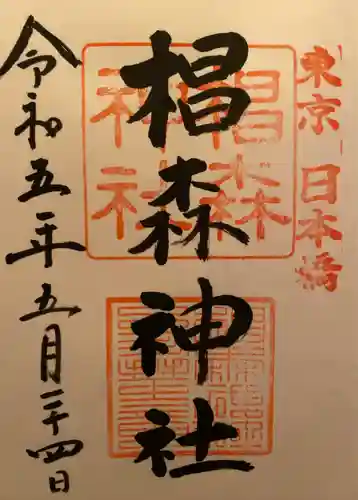 東京 日本橋
椙森神社
椙森
神社
令和五年五月二十四日